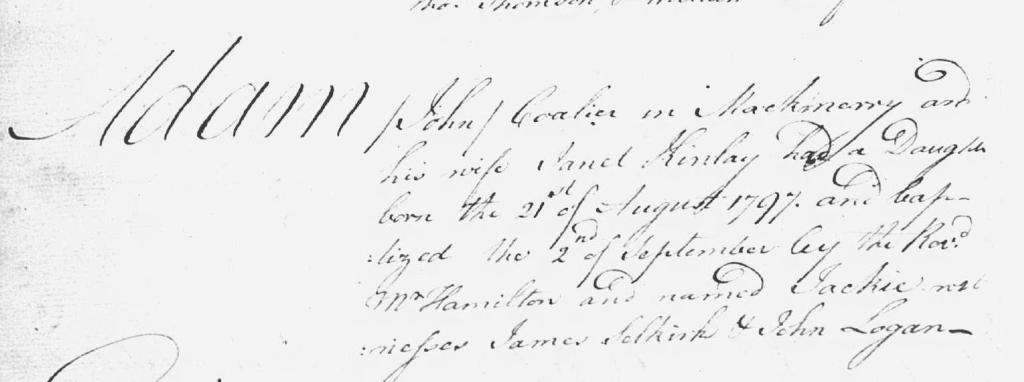 Thos. Thomson, &
Adam (John) Coalier in Mackmerry and
his wife Janet Kinlay had a Daughter
born the 21st of August 1797. and bap-
:tized the 2nd of September by the Revd.
Mr. Hamilton and named Jackie wit
:nesses James Selkirk & John Logan-